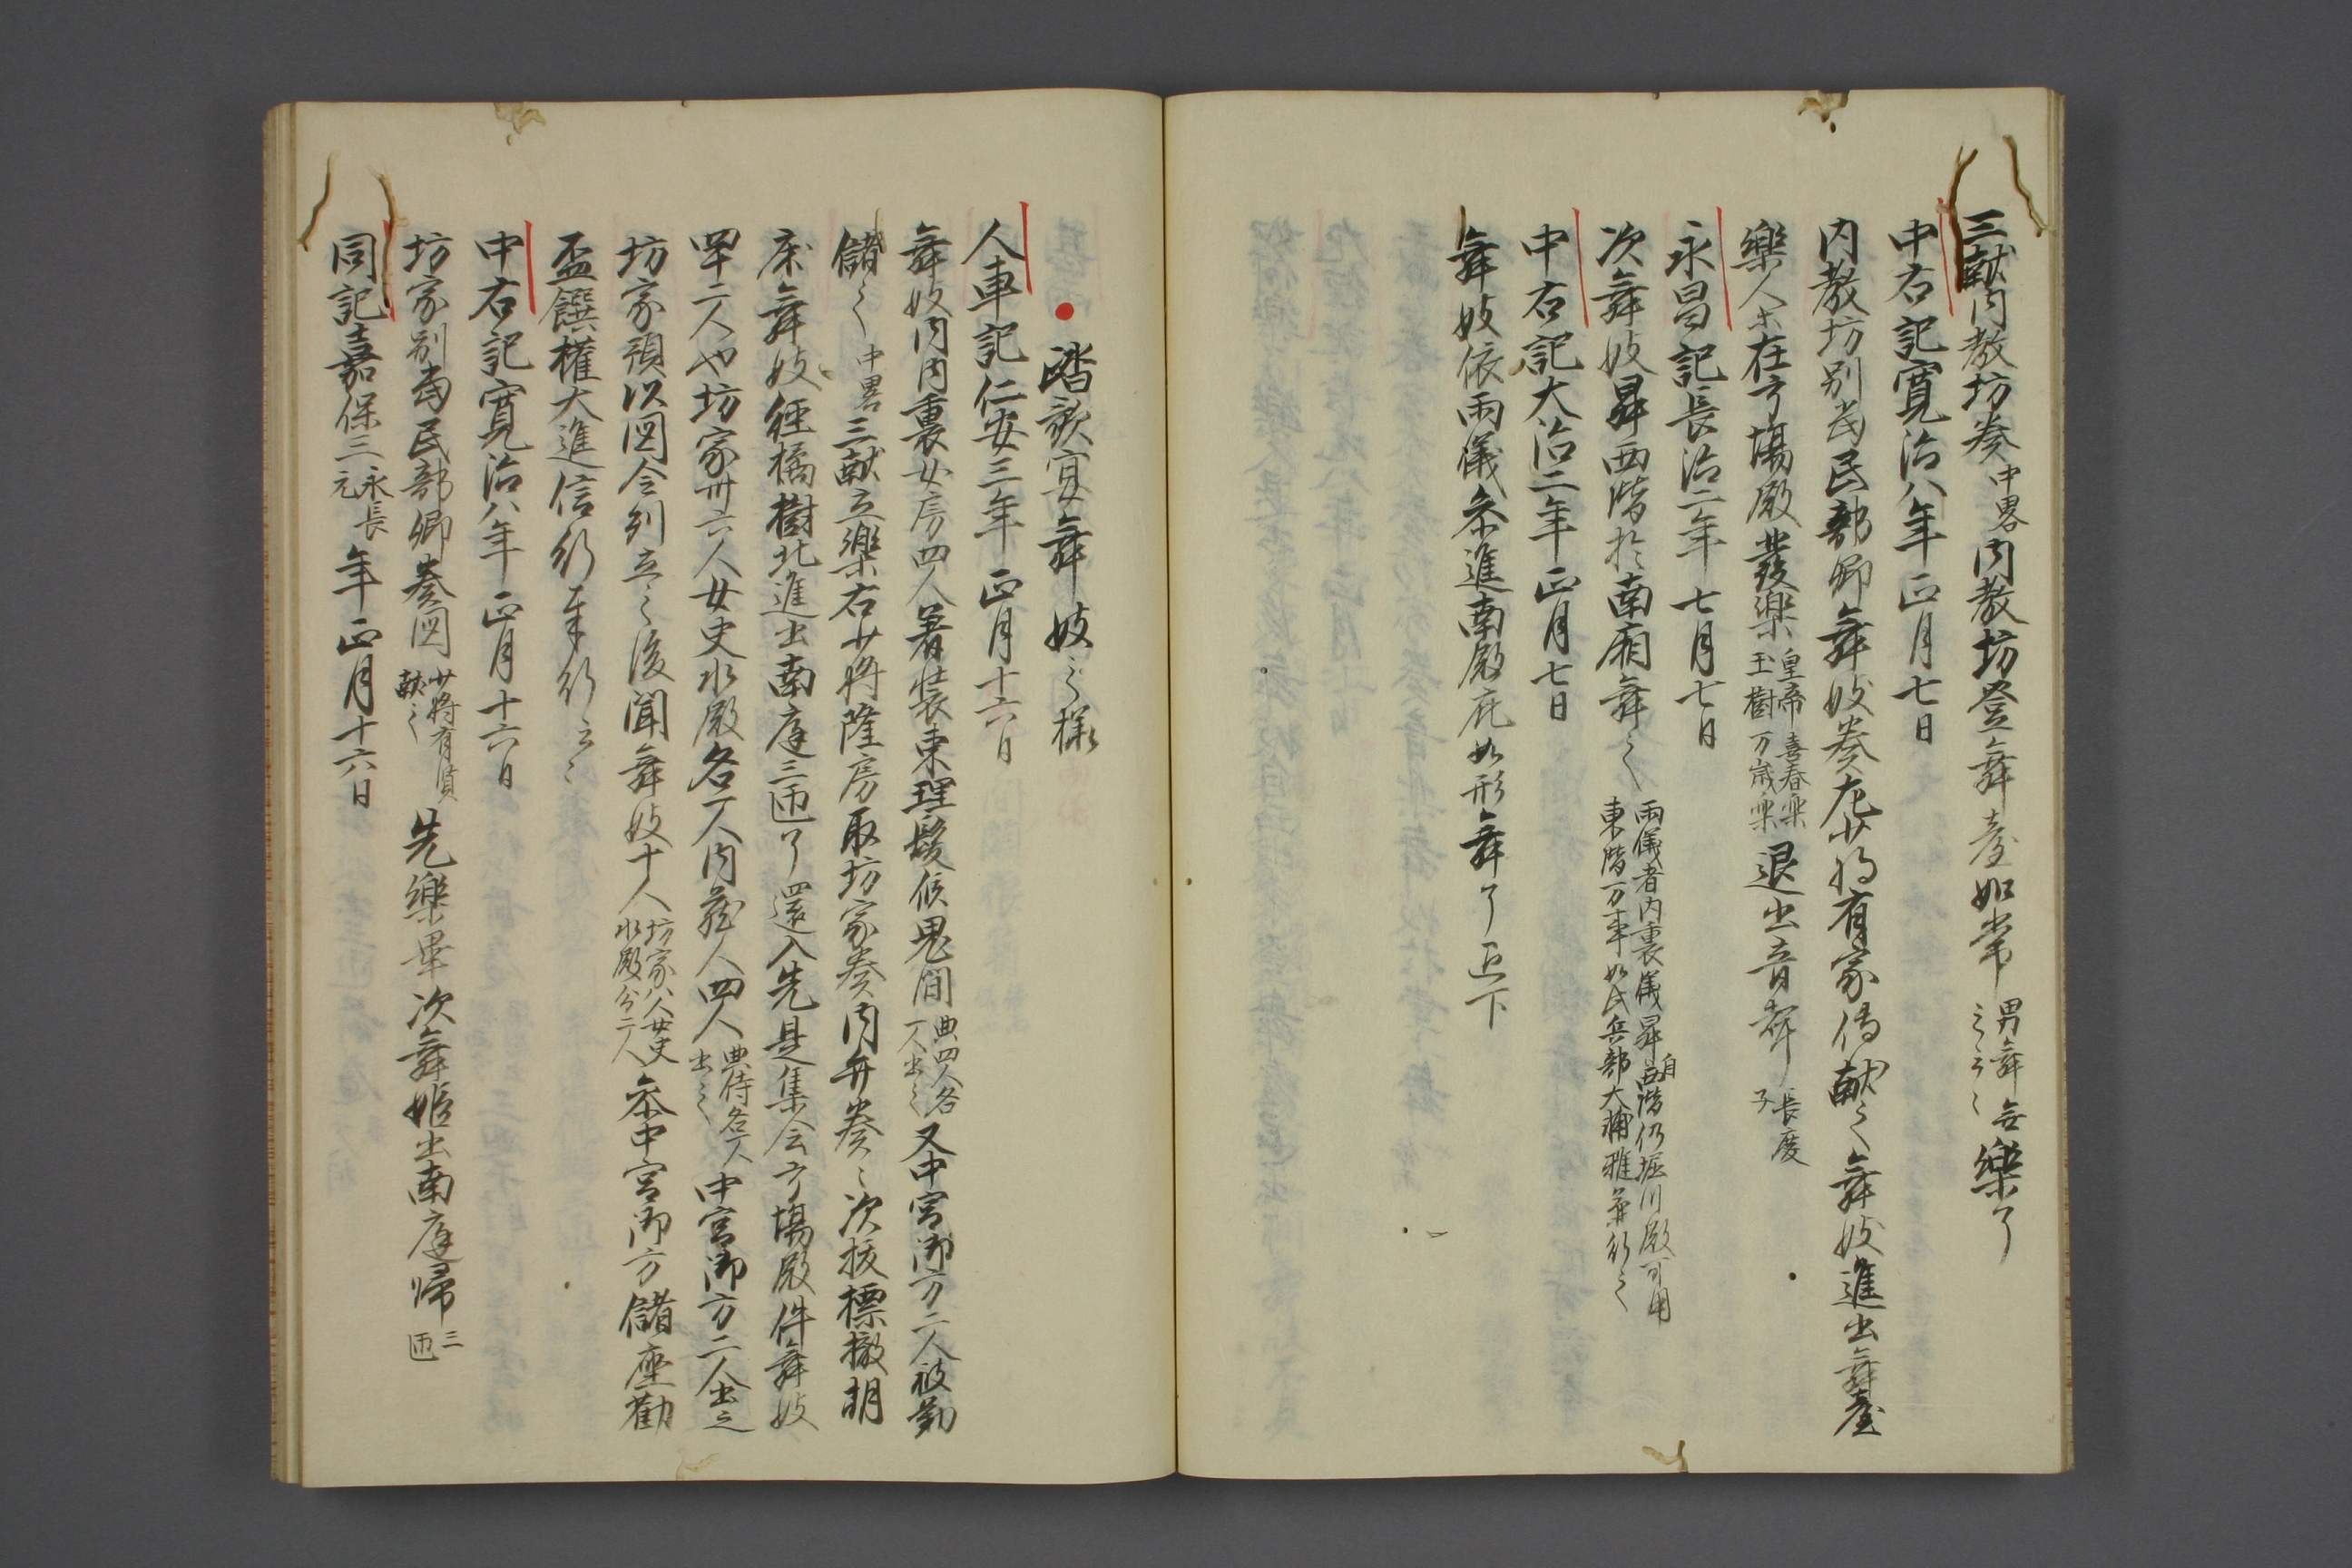 三献内教坊奏中畧内教坊登舞臺如常男舞无之云々樂了
中右記寛治八年正月七日
内教坊別当民部卿舞妓奏左少将有家傳献之舞妓進出舞臺
樂人等在弓場殿發樂皇帝喜春樂玉樹万歳樂退出音聲長慶子
永昌記長治二年七月七日
次舞妓昇西階於南廂舞之雨儀者内裏儀昇自西階仍堀川殿可用東階万事如此兵部大輔雅兼行之
中右記大治二年正月七日
舞妓依雨儀參進南殿庇如形舞了退下
踏歌宴舞妓之様
人車記仁安三年正月十六日
舞妓内内裏女房四人着装束理髪候鬼間典四人各一人出之又中宮御方二人被勤
儲之中畧三献立樂右少将隆房取坊家奏内弁奏々次拔標撤胡
床舞妓經橘樹北進出南庭三匝了還入先是集会弓場殿件舞妓
四十二人也坊家卅六人女史水殿各一人内蔵人四人典侍各一人出之中宮御方二人出之
坊家頭以図令列立之後聞舞妓十人坊家八人女史水殿分二人參中宮御方儲座勸
盃饌權大進信行奉行云々
中右記寛治八年正月十六日
坊家別当民部卿奏図少将有賢献之先樂畢次舞姫出南庭歸三匝
同記嘉保三永長元年正月十六日